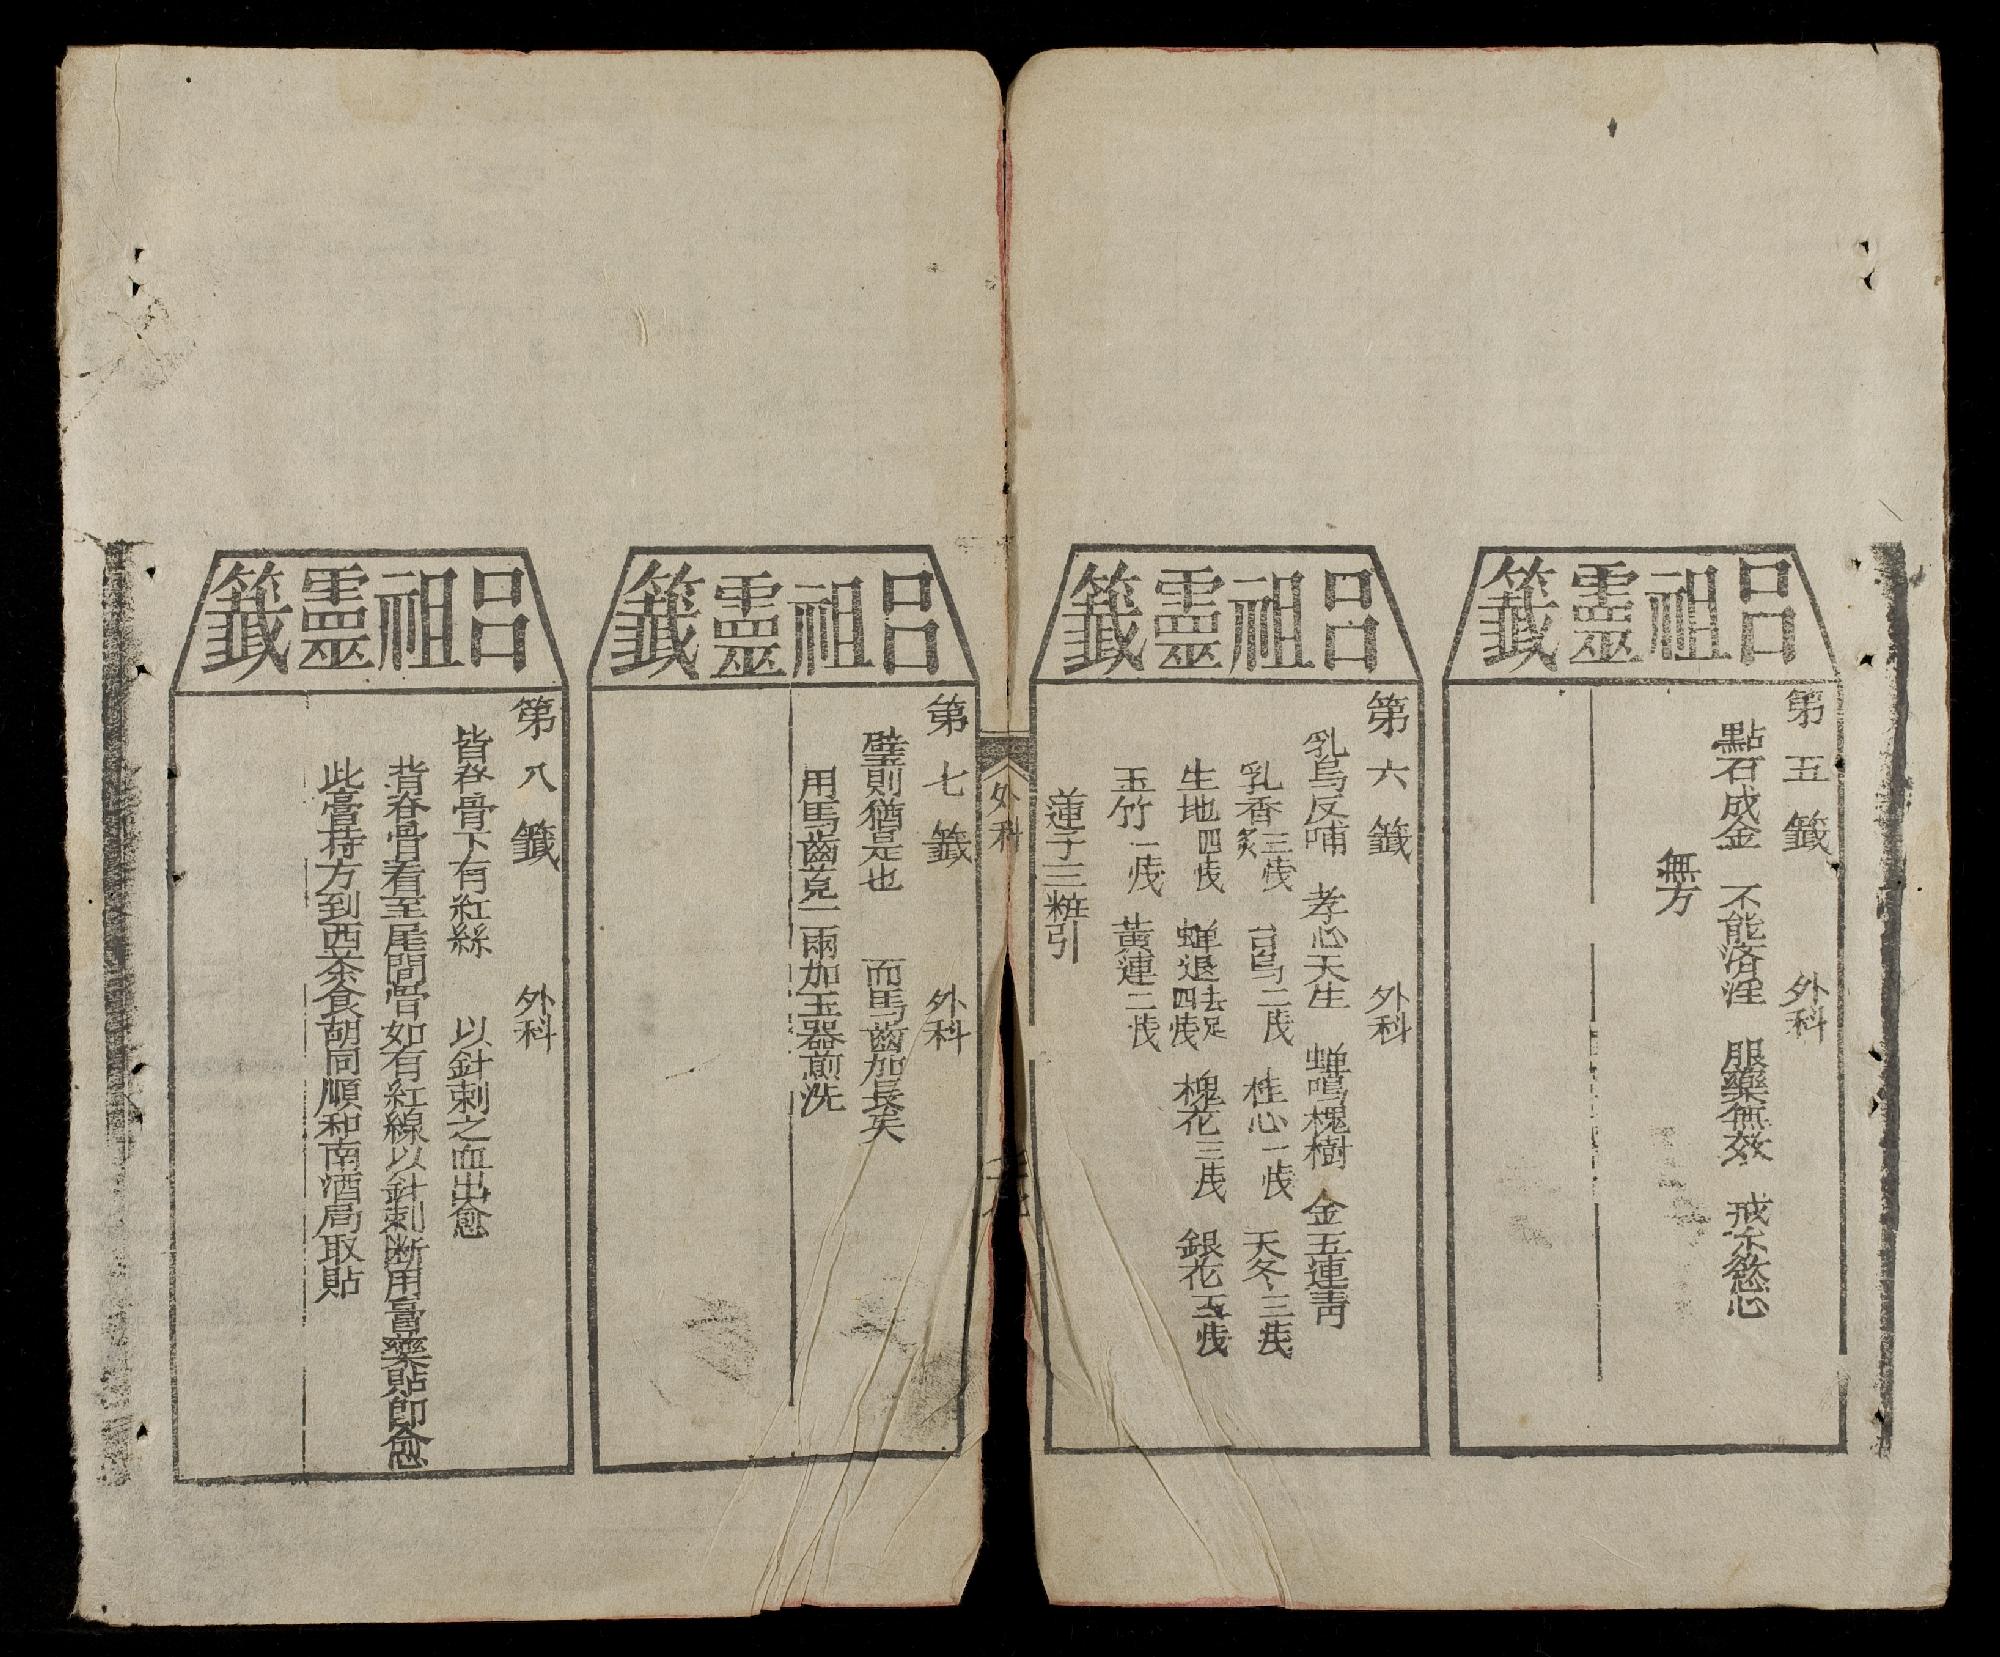 呂祖靈籤
第五籤 外科
點石成金 不能济淫 服藥無效 戒尔慾心
無方
呂祖靈籤
第六籤 外科
乳烏反哺 孝心天生 蝉鳴槐樹 金五連青
乳香三戋炙 台烏二戋 桂心一戋 天冬三戋
生地四戋 蝉退去足四戋 槐花三戋 銀花五戋
玉竹一戋 黃連二戋
蓮子三粒引
外科
呂祖靈籤
第七籤 外科
璧則猶是也 而馬齒加長矣
用馬齒莧一兩加玉器煎洗
呂祖靈籤
第八籤 外科
皆脊骨下有紅絲 以針刺之血出愈
背脊骨看至尾閭骨如有紅線以針刺断用膏藥貼即愈
此膏持方到西茶食胡同順和南酒局取貼